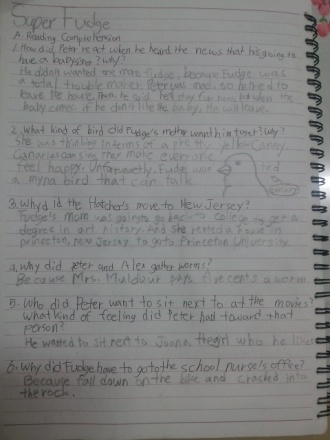 Super Fudge
A. Reading Comprehension
1. How did Peter react when he heard the news that he's going to
have a baby sister? Why?
He didn't wanted one more Fudge, because Fudge was
a total trouble maker. Peter was mad, so he tried to
leave the house. Then, he said he'd stay but when the
baby comes if he don't like the baby, he will leave.
2. What kind of bird did Fudge's mother want him to get? Why?
She was thinking in terms of a pretty yellow Canary.
Canaries can sing they make everyone
feel happy. Unfortunately, Fudge wanted
a myna bird that can talk
3. Why did the Hatcher's move to New Jersey?
Fudge's mom was going to go back to college to get a
degree in art history. And she rented a house in
princeton, new Jersey to go to Princeton University.
4. Why did peter and Alex gather worms?
Because Mrs. Muldour pays five cents a worm
5. Who did Peter want to sit next to at the movies?
What kind of feeling did Peter had toward that
person?
He wanted to sit next to Joanne, the girl who he likes
6. Why did Fudge have to go to the school nurse's office?
Because fall down on the bike and crashed into
the rock.